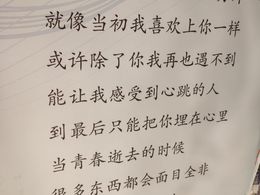 就像当初我喜欢上你一样
或许除了你我再也遇不到
能让我感受到心跳的人
到最后只能把你埋在心里
当青春逝去的时候
很多东西都会面目全非